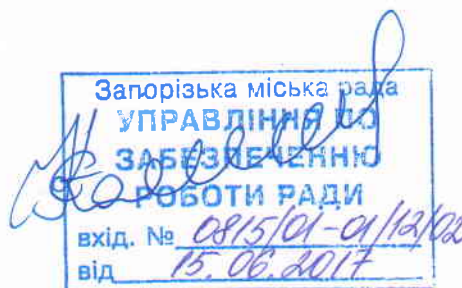 Запорізька міська рада
УПРАВЛІННЯ ПО
ЗАБЕЗПЕЧЕННЮ
РОБОТИ РАДИ
вхід. № 0815/01-01/12/02
від 15.06.2017